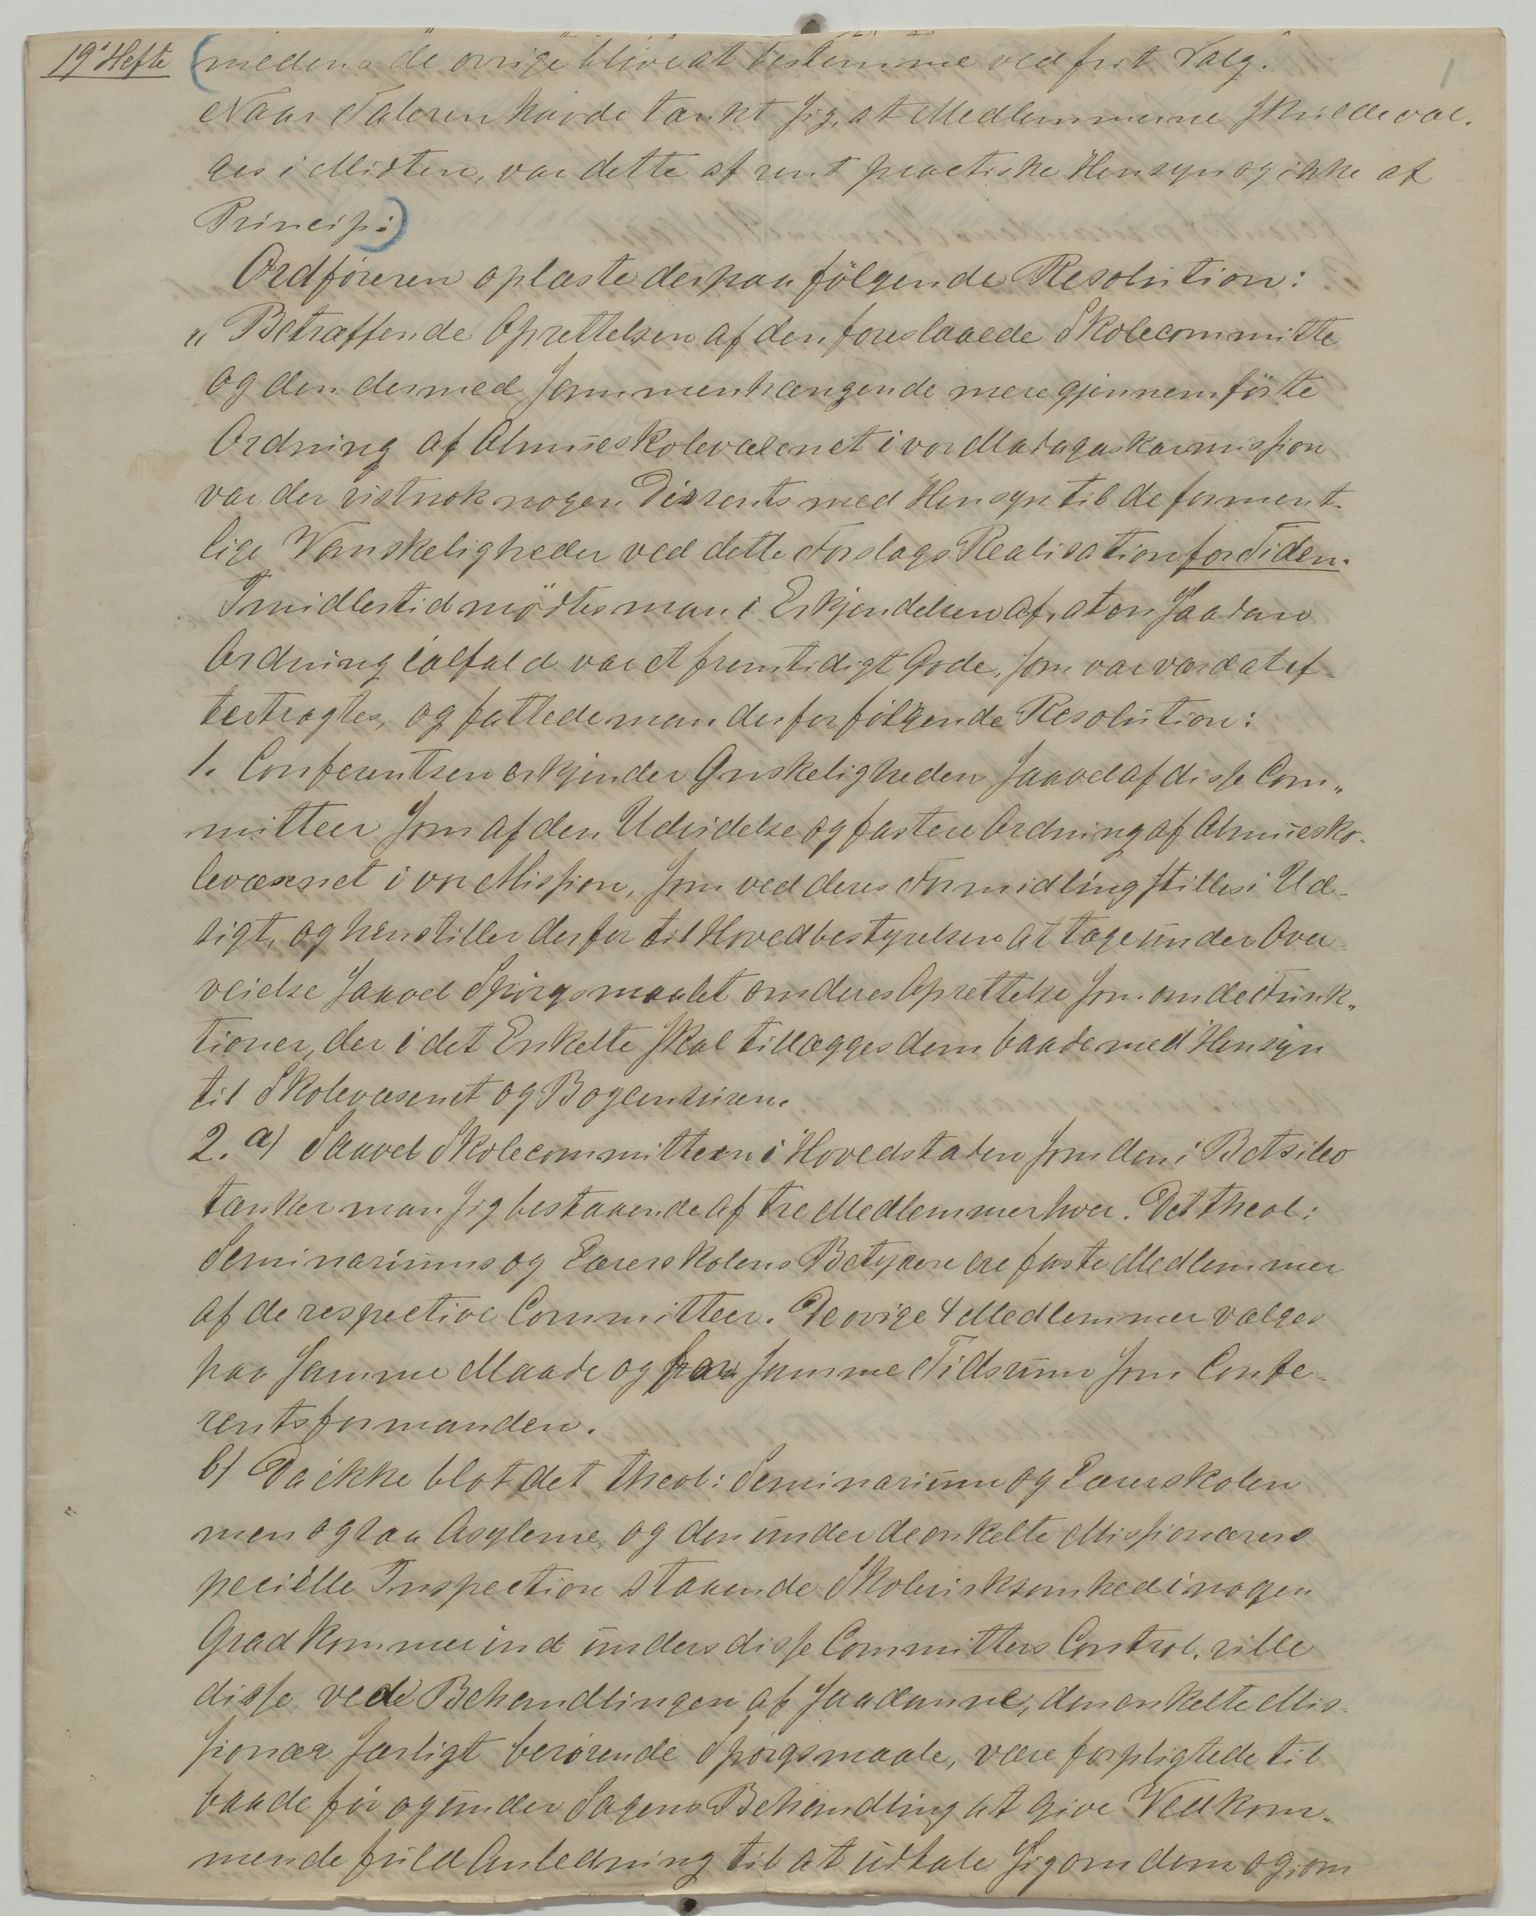 19de Hefte
(medens de øvrige blive at bestemme ved frit Valg.
Naar Taleren havde tænkt sig, at Medlemmerne skulde væl-
ges i Midten, var dette af rent practiske Hensyn og ikke af
Princip:)
Ordføreren oplæste derpaa følgende Resolution:
„Betræffende Oprettelsen af den foreslaaede Skolecommitte
og den dermed sammenhængende mere gjennemførte
Ordning af Almueskolevæsenet i vor Madagaskarmission
var der vistnok nogen Dissents med Hensyn til de forment-
lige Vanskeligheder ved dette Forslags Realisation for Tiden.
Imidlertid mødtes man i Erkjendelsen af, at en saadan
Ordning ialfald var et fremtidigt Gode, som var værd at ef-
tertragtes, og fattede man derfor følgende Resolution:
1. Conferentsen erkjender Ønskeligheden saavel af disse Com-
mitteer som af den Udvidelse og fastere Ordning af Almuesko-
levæsenet i vor Mission, som ved deres Formidling stilles i Ud-
sigt, og henstiller derfor til Hovedbestyrelsen at tage under Over-
veielse saavel Spørgsmaalet om deres Oprettelse som om de Funk-
tioner, der i det Enkelte skal tillægges dem baade med Hensyn
til Skolevæsenet og Bogcensuren.
2. a) Saavel Skolecommitteen i Hovedstaden som den i Betsileo
tænker man sig bestaaende af tre Medlemmer hver. Det theol:
Seminariums og Lærerskolens Bestyrere ere faste Medlemmer
af de respective Committeer. De øvrige 4 Medlemmer vælges
paa samme Maade og for samme Tidsrum som Confe-
rentsformanden.
b) Da ikke blot det theol: Seminarium og Lærerskolen
men ogsaa Asylerne, og den under de enkelte Missionærers
specielle Inspection staaende Skolevirksomhed i nogen
Grad kommer ind under disse Committers Control, ville
disse ved Behandlingen af saadanne, den enkelte Mis-
sionær særligt berørende Spørgsmaale, være forpligtede til
baade før og under Sagens Behandling at give Vedkom-
mende fuld Anledning til at udtale sig om dem og om